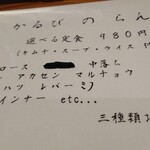 かるびのらん
選べる定食 980円
(キムチ・スープ・ライス
ロース 中落ち
アカセン マルチョウ
ハツ レバー ミノ
インナー etc...
三種類